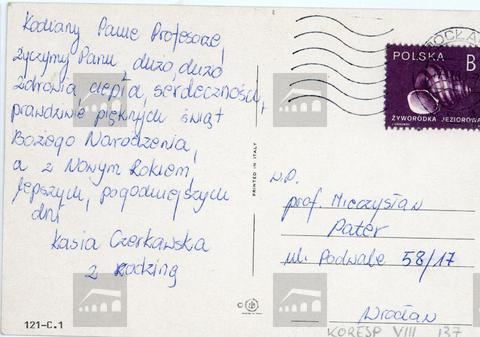 Kochany Panie Profesorze,
życzymy Panu dużo, dużo
zdrowia ciepła, serdeczności,
prawdziwie pięknych świąt
Bożego Narodzenia,
a z Nowym Rokiem,
lepszych, pogodniejszych
dni
Kasia Czerkawska
z rodziną
121-C.1
PRINTED IN ITALY
POLSKA B
ŻYWORÓDKA JEZIOROWA
W.P.
prof. Mieczysław
Pater
ul. Podwale 58/17
Wrocław
KORESP VIII 137